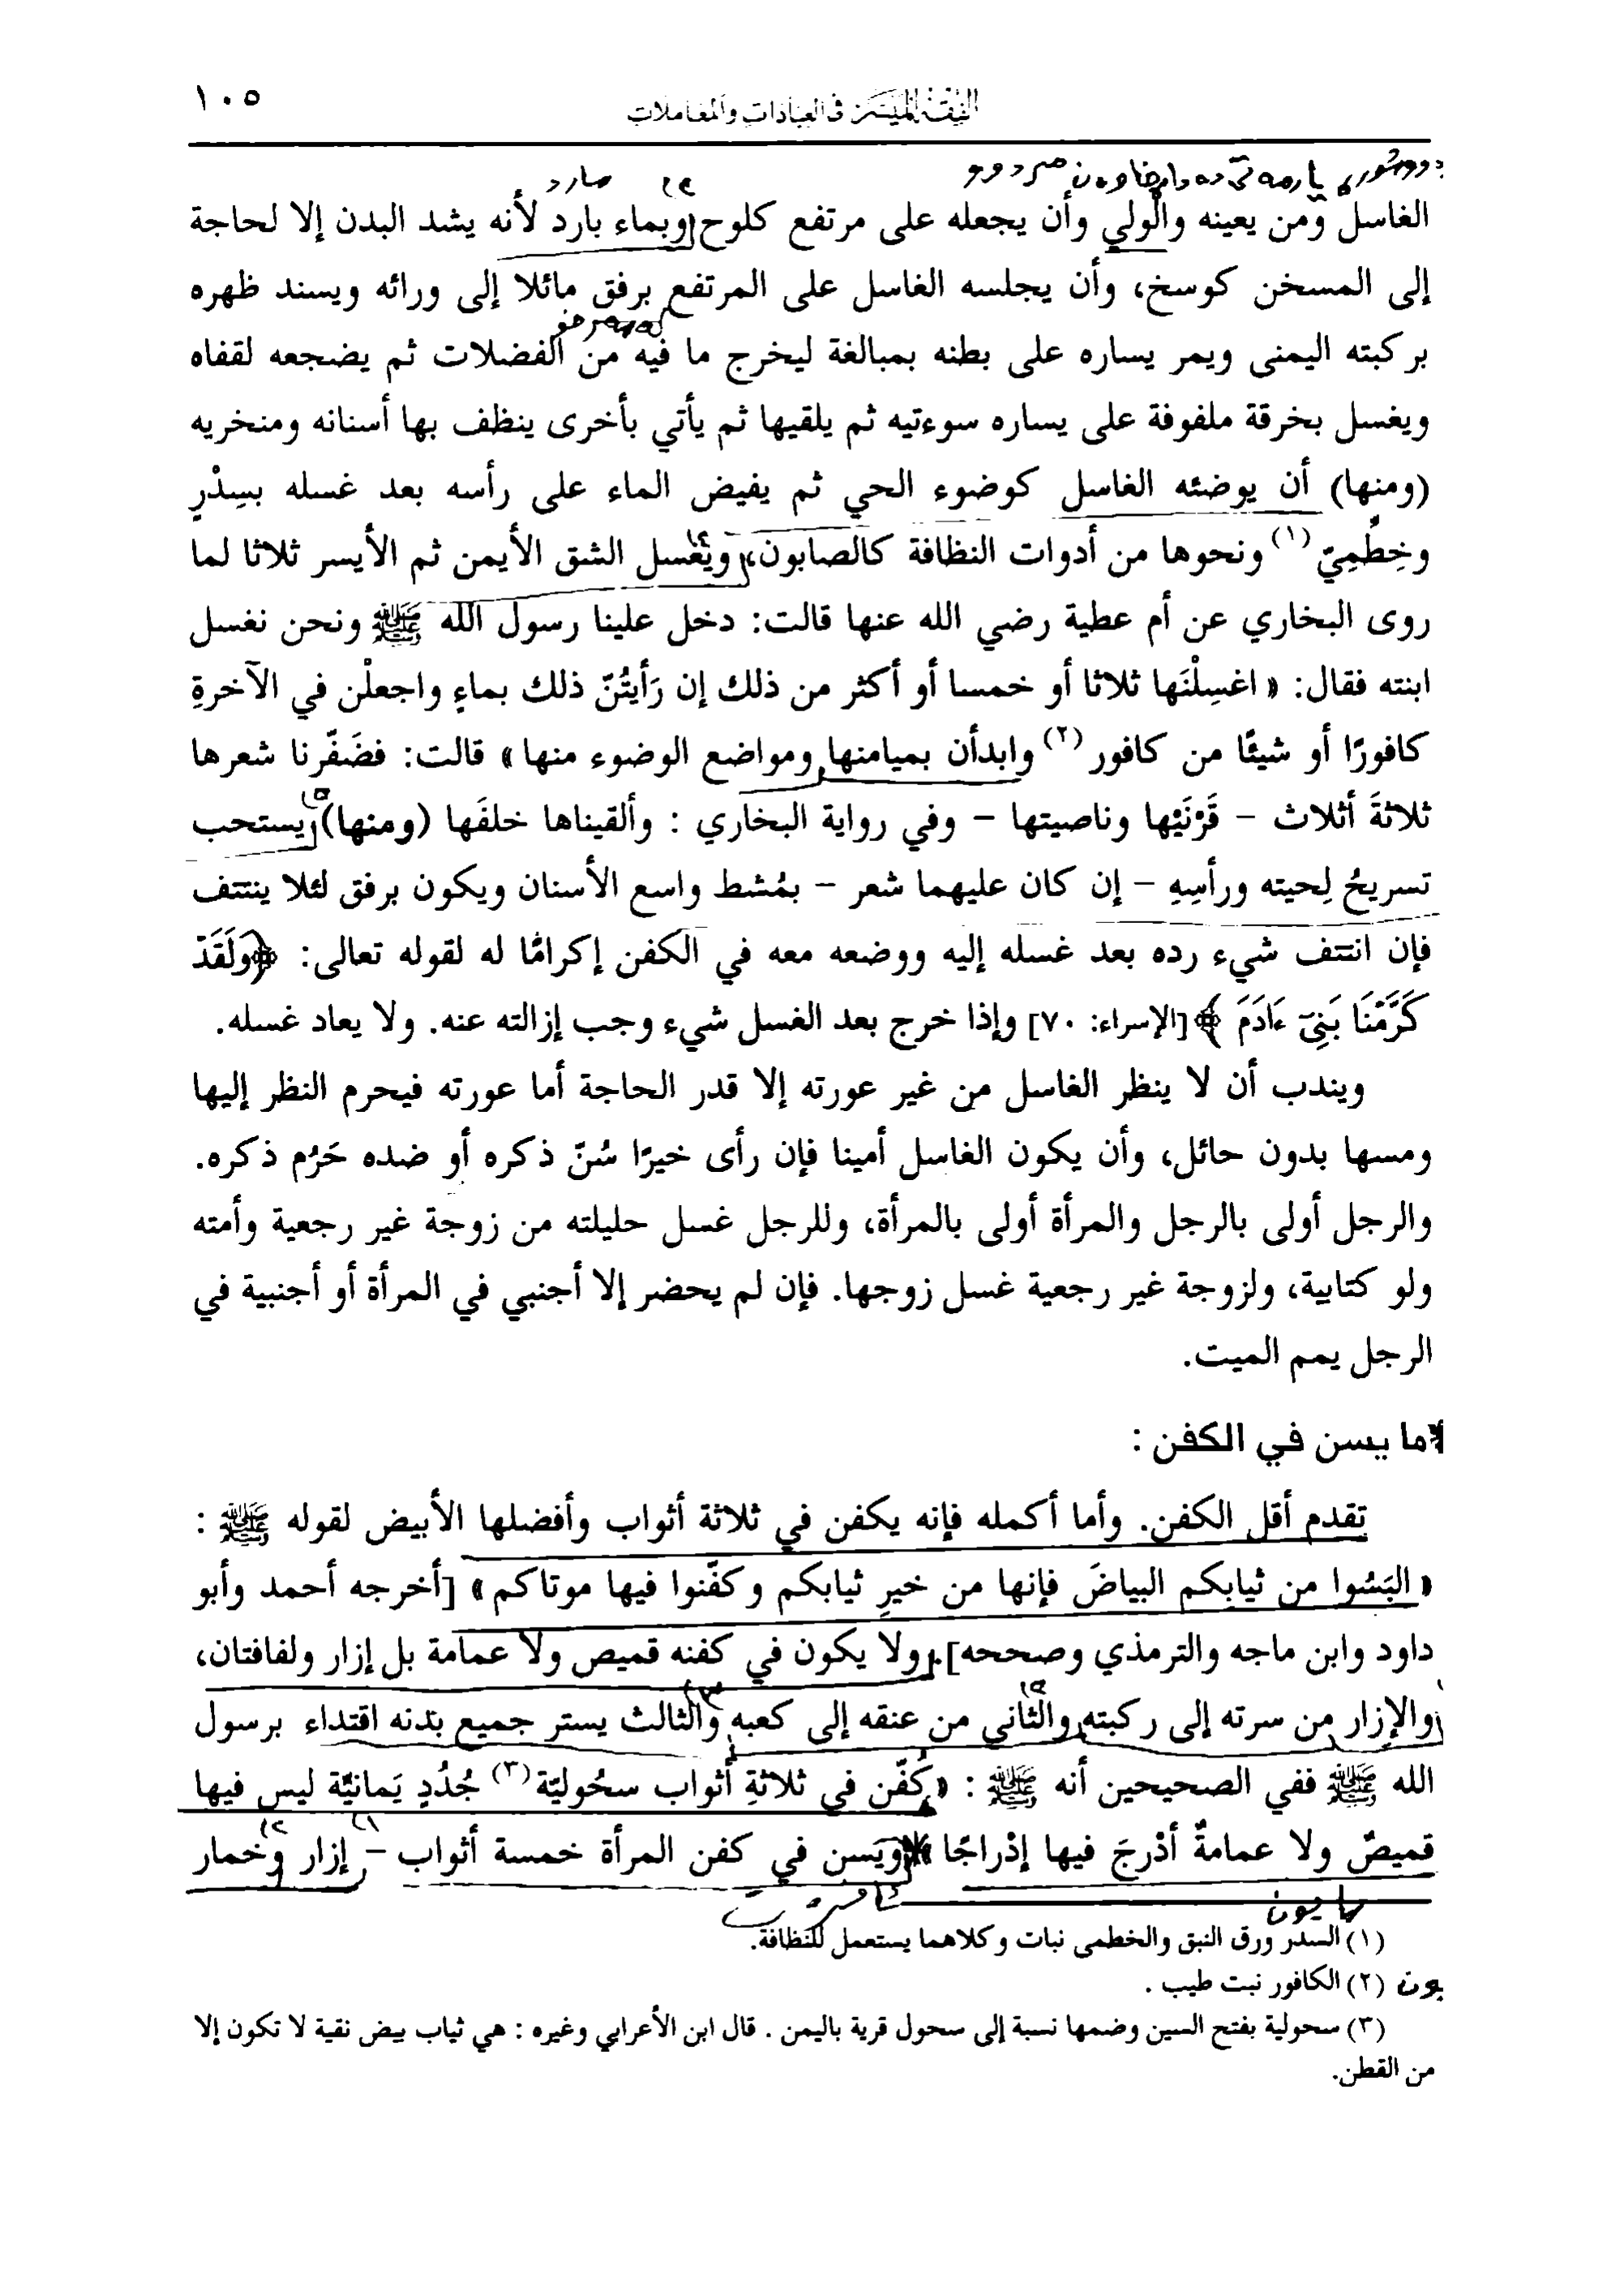 الفقه الميسر في العبادات والمعاملات
١٠٥
الغاسل ومن يعينه والولي وأن يجعله على مرتفع كلوح وبماء بارد لأنه يشد البدن إلا لحاجة
إلى المسخن كوسخ، وأن يجلسه الغاسل على المرتفع برفق مائلا إلى ورائه ويسند ظهره
بركبته اليمنى ويمر يساره على بطنه بمبالغة ليخرج ما فيه من الفضلات ثم يضجعه لقفاه
ويغسل بخرقة ملفوفة على يساره سوءتيه ثم يلقيها ثم يأتي بأخرى ينظف بها أسنانه ومنخريه
(ومنها) أن يوضئه الغاسل كوضوء الحي ثم يفيض الماء على رأسه بعد غسله بسِدْرٍ
وخِطْمِيّ (١) ونحوها من أدوات النظافة كالصابون، ويغسل الشق الأيمن ثم الأيسر ثلاثا لما
روى البخاري عن أم عطية رضي الله عنها قالت: دخل علينا رسول الله ﷺ ونحن نغسل
ابنته فقال: « اغسِلْنَها ثلاثا أو خمسا أو أكثر من ذلك إن رَأيتُنّ ذلك بماءٍ واجعلْن في الآخرةِ
كافورًا أو شيئًا من كافور (٢) وابدأن بميامنها ومواضع الوضوء منها » قالت: فضَفّرنا شعرها
ثلاثةَ أثلاث – قَرْنَيْها وناصيتها – وفي رواية البخاري : وألقيناها خلفَها (ومنها) يستحب
تسريحُ لِحيته ورأسِهِ – إن كان عليهما شعر – بمُشط واسع الأسنان ويكون برفق لئلا ينتتف
فإن انتتف شيء رده بعد غسله إليه ووضعه معه في الكفن إكرامًا له لقوله تعالى: ﴿وَلَقَدْ
كَرَّمْنَا بَنِىٓ ءَادَمَ ﴾ [الإسراء: ٧٠] وإذا خرج بعد الغسل شيء وجب إزالته عنه. ولا يعاد غسله.
ويندب أن لا ينظر الغاسل من غير عورته إلا قدر الحاجة أما عورته فيحرم النظر إليها
ومسها بدون حائل، وأن يكون الغاسل أمينا فإن رأى خيرًا سُنّ ذكره أو ضده حَرُم ذكره.
والرجل أولى بالرجل والمرأة أولى بالمرأة، وللرجل غسل حليلته من زوجة غير رجعية وأمته
ولو كتابية، ولزوجة غير رجعية غسل زوجها. فإن لم يحضر إلا أجنبي في المرأة أو أجنبية في
الرجل يمم الميت.
ما يسن في الكفن :
تقدم أقل الكفن. وأما أكمله فإنه يكفن في ثلاثة أثواب وأفضلها الأبيض لقوله ﷺ :
« البَسُوا من ثيابكم البياضَ فإنها من خيرِ ثيابكم وكفّنوا فيها موتاكم » [أخرجه أحمد وأبو
داود وابن ماجه والترمذي وصححه]. ولا يكون في كفنه قميص ولا عمامة بل إزار ولفافتان،
والإزار من سرته إلى ركبته والثاني من عنقه إلى كعبه والثالث يستر جميع بدنه اقتداء برسول
الله ﷺ ففي الصحيحين أنه ﷺ : « كُفّن في ثلاثةِ أثواب سحُوليّة (٣) جُدُدٍ يَمانيّة ليس فيها
قميصٌ ولا عمامةٌ أدْرجَ فيها إدْراجًا » ويَسن في كفن المرأة خمسة أثواب – إزار وخمار
(١) السدر ورق النبق والخطمى نبات وكلاهما يستعمل للنظافة.
(٢) الكافور نبت طيب .
(٣) سحولية بفتح السين وضمها نسبة إلى سحول قرية باليمن . قال ابن الأعرابي وغيره : هي ثياب بيض نقية لا تكون إلا
من القطن.